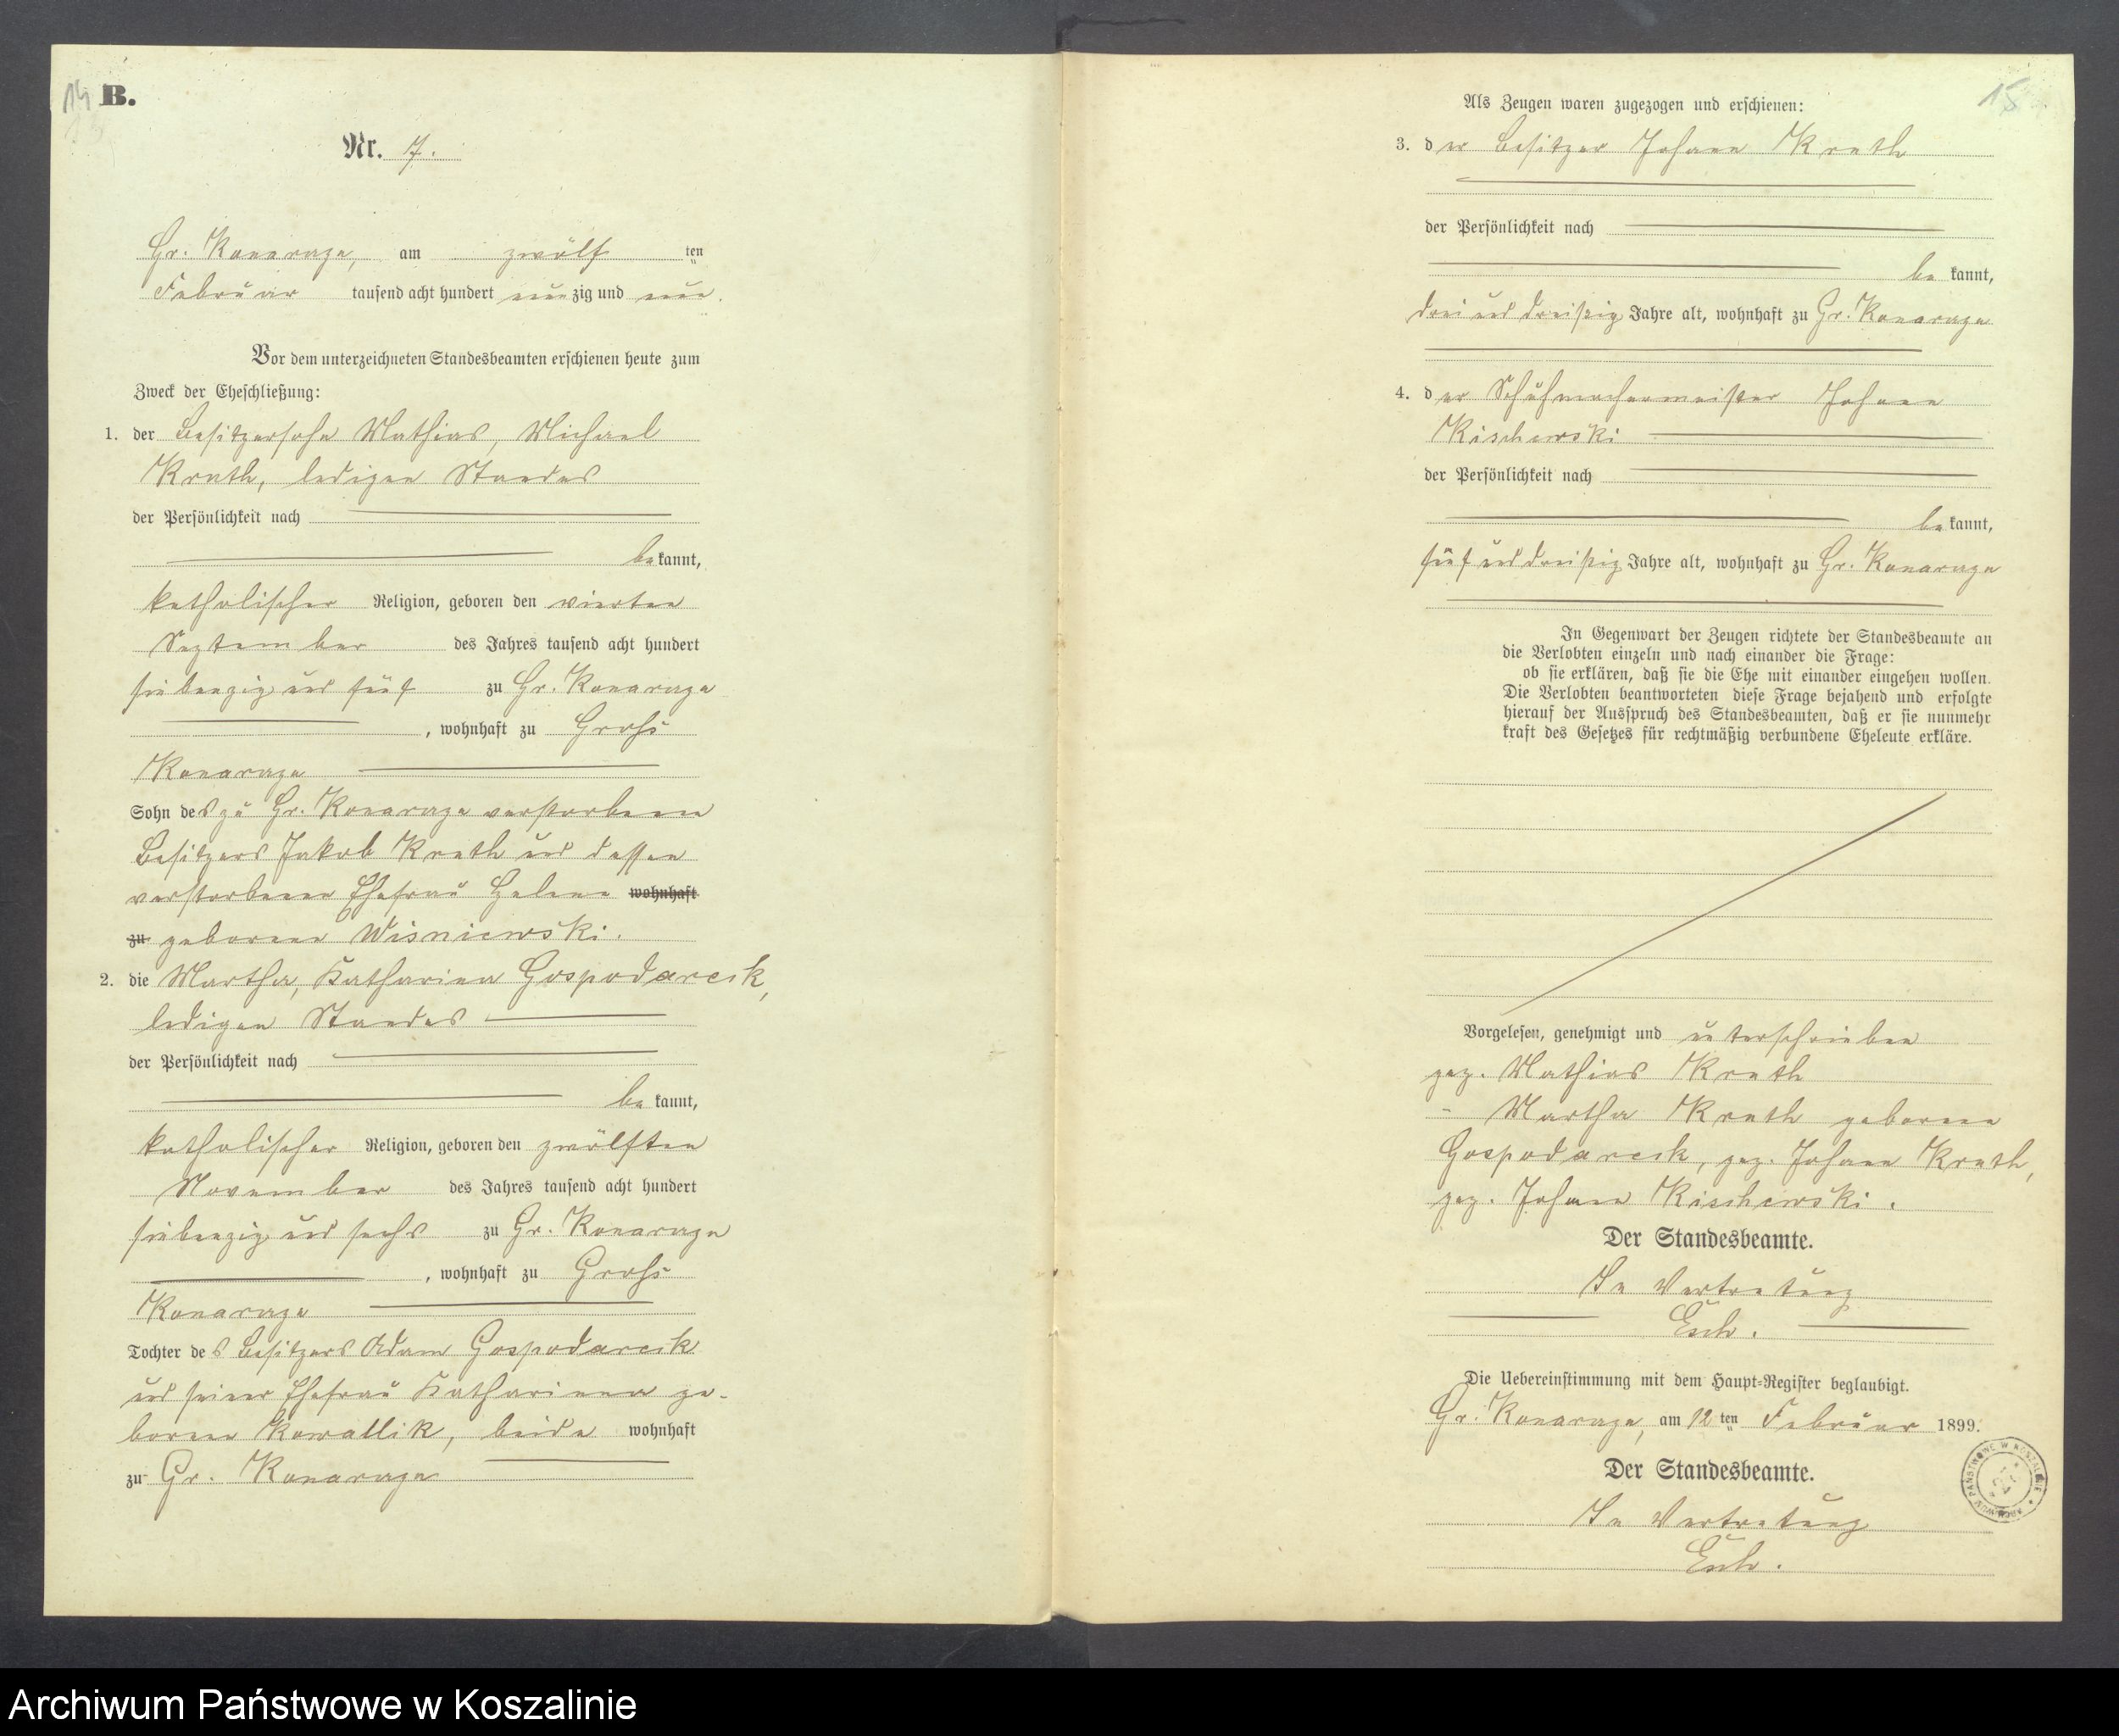 14 B.
Nr. 7.
Gr. Konarzyn, am zwölf ten
Februar tausend acht hundert neunzig und neun.
Vor dem unterzeichneten Standesbeamten erschienen heute zum
Zweck der Eheschließung:
1. der Besitzersohn Mathias, Michael
Knuth, ledigen Standes
der Persönlichkeit nach
bekannt,
katholischer Religion, geboren den vierten
September des Jahres tausend acht hundert
siebenzig und fünf zu Gr. Konarzyn
, wohnhaft zu Groß
Konarzyn
Sohn des zu Gr. Konarzyn verstorbenen
Besitzers Jakob Knuth und dessen
verstorbenen Ehefrau Helene wohnhaft
zu geborene Wisniewski.
2. die Martha, Katharina Gospodarcik,
ledigen Standes
der Persönlichkeit nach
bekannt,
katholischer Religion, geboren den zwölften
November des Jahres tausend acht hundert
siebenzig und sechs zu Gr. Konarzyn
, wohnhaft zu Groß
Konarzyn
Tochter des Besitzers Adam Gospodarcik
und seiner Ehefrau Katharina ge-
borene Kowallik, beide wohnhaft
zu Gr. Konarzyn
15
Als Zeugen waren zugezogen und erschienen:
3. der Besitzer Johann Knuth
der Persönlichkeit nach
bekannt,
drei und dreißig Jahre alt, wohnhaft zu Gr. Konarzyn
4. der Schuhmachermeister Johann
Kischewski
der Persönlichkeit nach
bekannt,
fünf und dreißig Jahre alt, wohnhaft zu Gr. Konarzyn
In Gegenwart der Zeugen richtete der Standesbeamte an
die Verlobten einzeln und nach einander die Frage:
ob sie erklären, daß sie die Ehe mit einander eingehen wollen.
Die Verlobten beantworteten diese Frage bejahend und erfolgte
hierauf der Ausspruch des Standesbeamten, daß er sie nunmehr
kraft des Gesetzes für rechtmäßig verbundene Eheleute erkläre.
Vorgelesen, genehmigt und unterschrieben
gez. Mathias Knuth
" Martha Knuth geborene
Gospodarcik, gez. Johann Knuth,
gez. Johann Kischewski.
Der Standesbeamte.
In Vertretung
Esch.
Die Uebereinstimmung mit dem Haupt-Register beglaubigt.
Gr. Konarzyn, am 12 ten Februar 1899.
Der Standesbeamte.
In Vertretung
Esch.
ARCHIWUM PAŃSTWOWE W KOSZALINIE
Archiwum Państwowe w Koszalinie